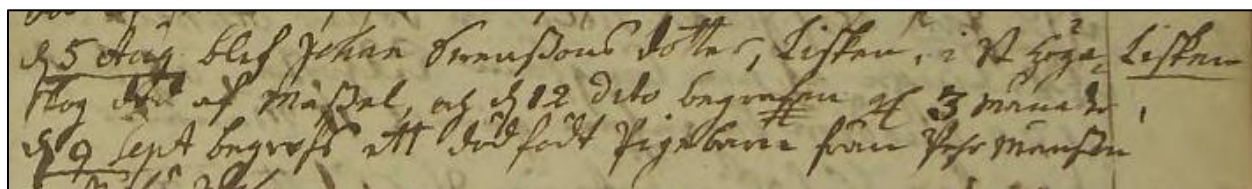 d 5 Aug blef Johan Swenßons dotter, Lisken, i St Höge, Lisken
skog död af Mäßel, och d 12 dito begrafven gl 3 månader,
d 9 Sept begrofs ett dödfödt Pigebarn från Pehr Månßon